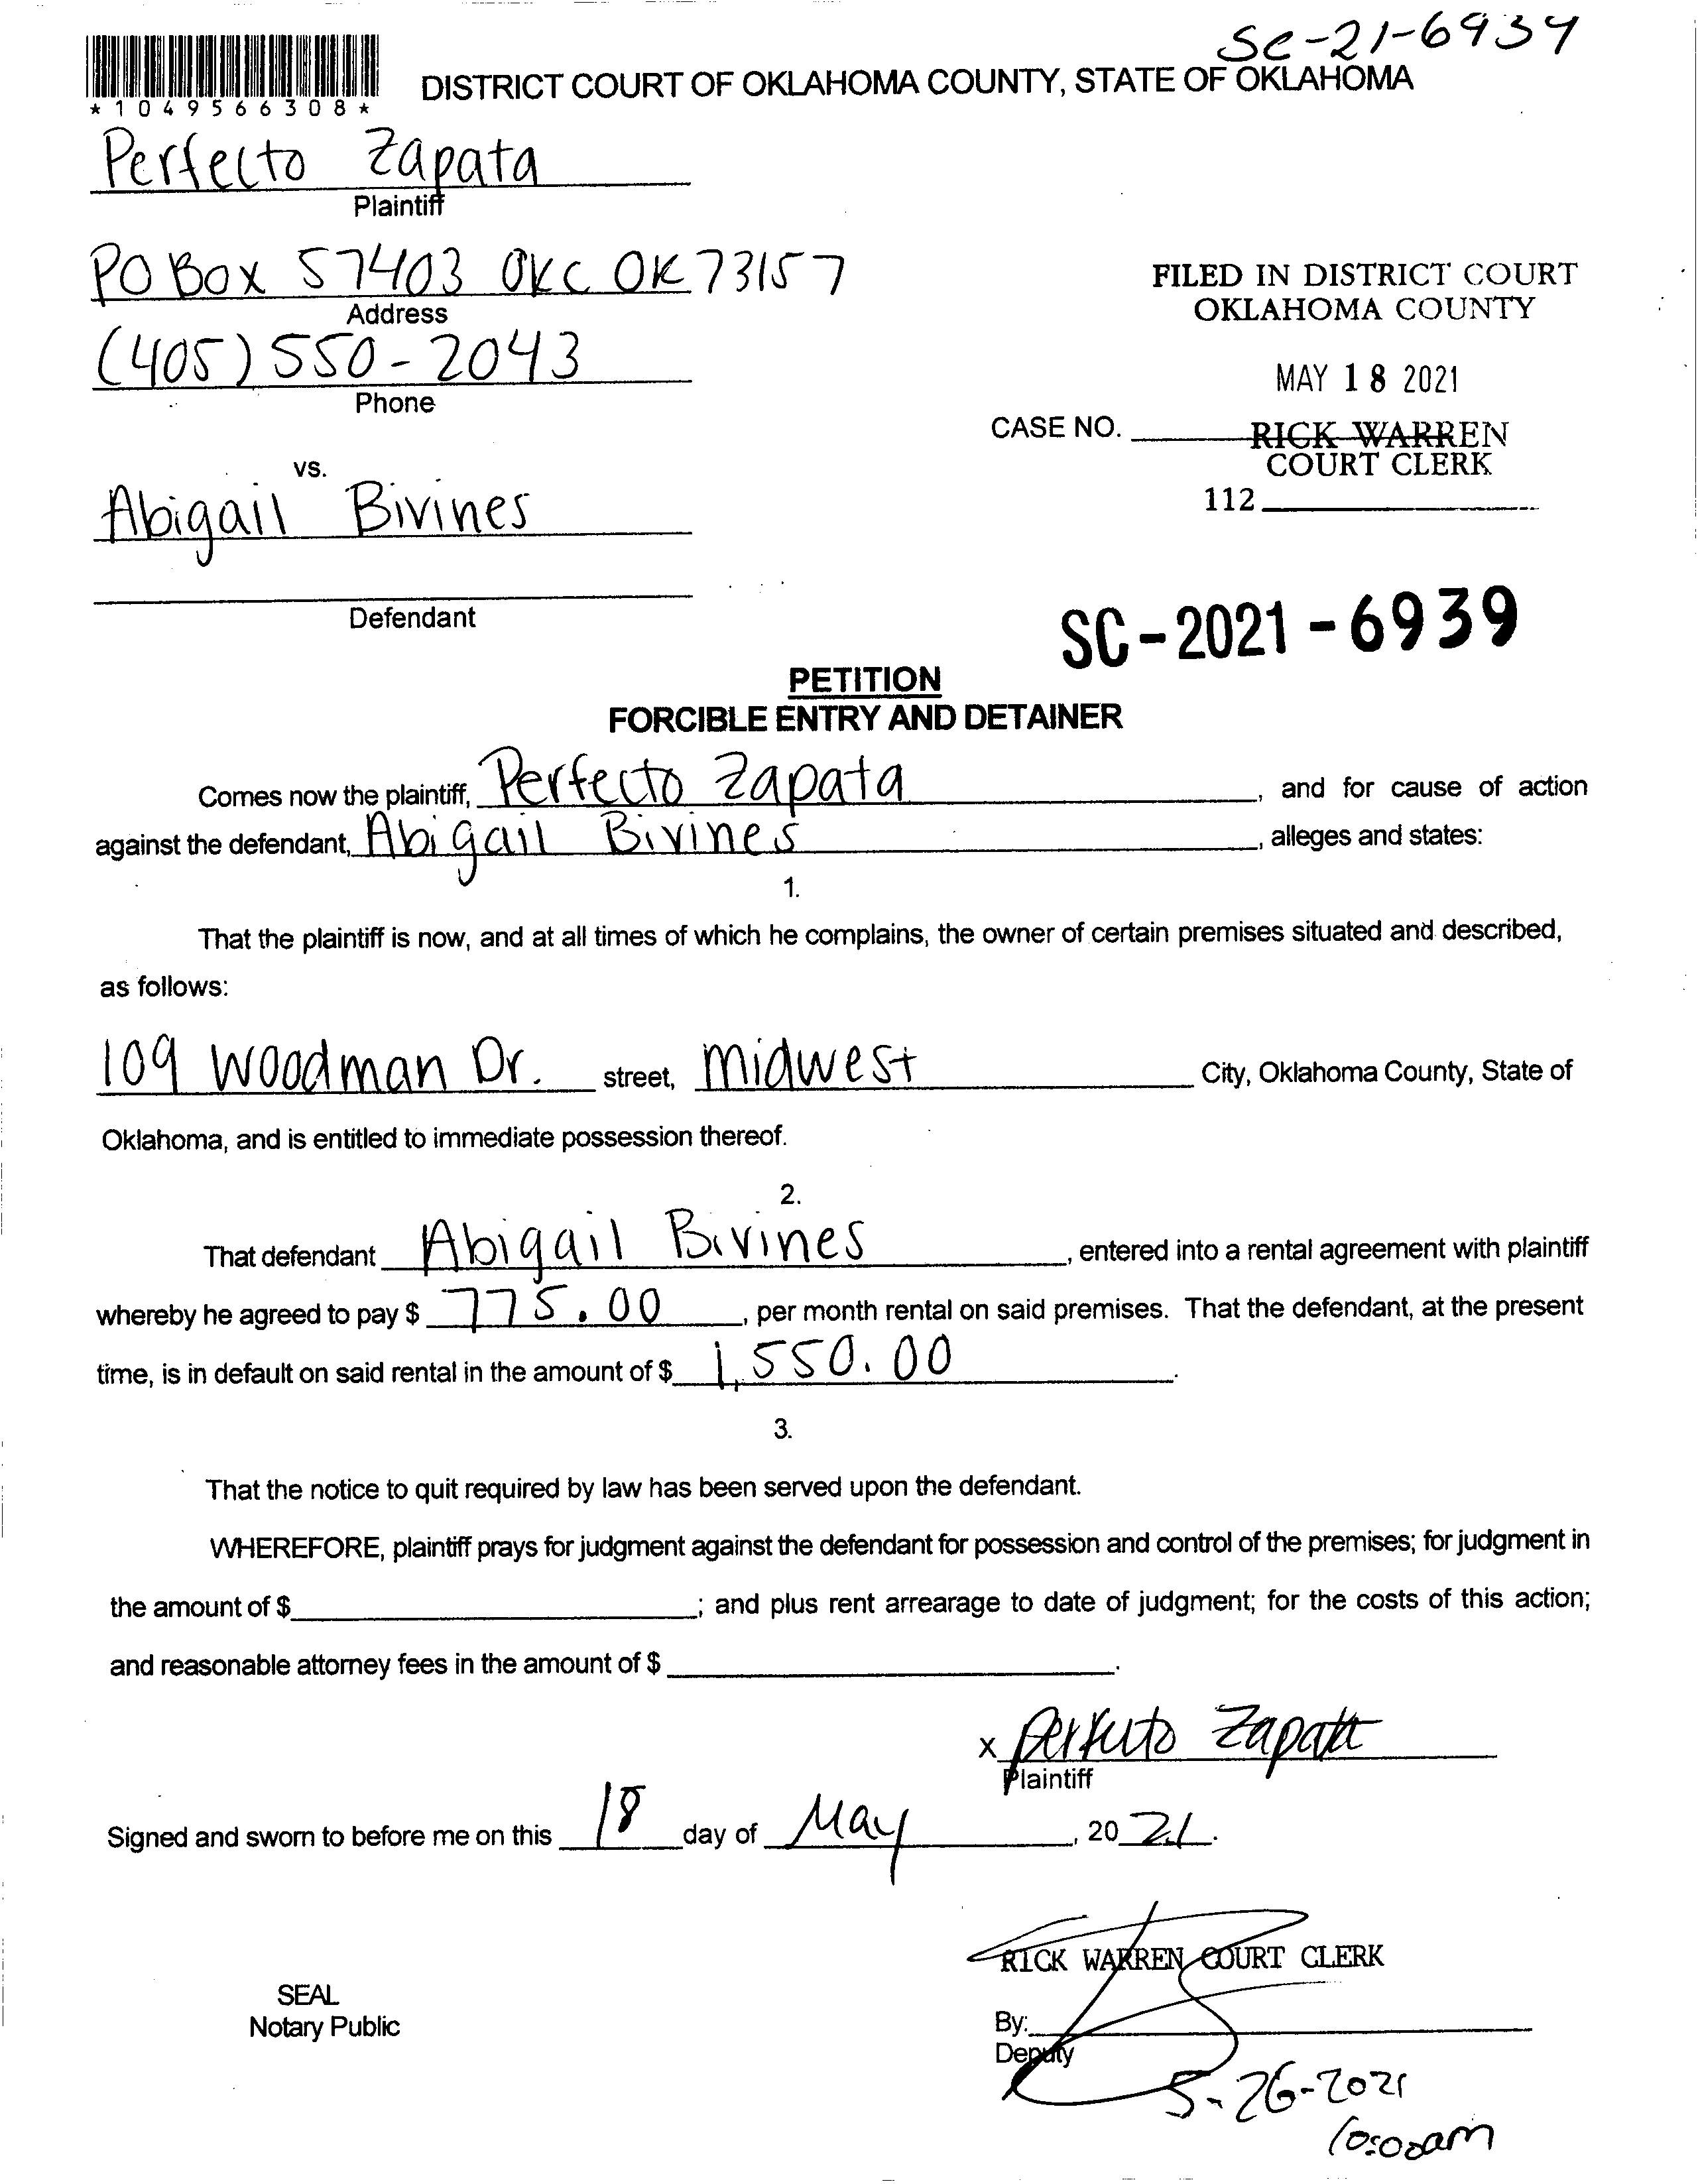 SC-21-6939
DISTRICT COURT OF OKLAHOMA COUNTY, STATE OF OKLAHOMA
*1049566308*
Perfecto Zapata
Plaintiff
PO Box 57403 OKC OK 73157
Address
(405) 550-2043
Phone
FILED IN DISTRICT COURT
OKLAHOMA COUNTY
MAY 18 2021
CASE NO.
RICK WARREN
COURT CLERK
112
vs.
Abigail Bivines
Defendant
SC-2021-6939
PETITION
FORCIBLE ENTRY AND DETAINER
Comes now the plaintiff, Perfecto Zapata, and for cause of action
against the defendant, Abigail Bivines, alleges and states:
1.
That the plaintiff is now, and at all times of which he complains, the owner of certain premises situated and described,
as follows:
109 Woodman Dr. street, Midwest City, Oklahoma County, State of
Oklahoma, and is entitled to immediate possession thereof.
2.
That defendant Abigail Bivines, entered into a rental agreement with plaintiff
whereby he agreed to pay $ 775.00, per month rental on said premises. That the defendant, at the present
time, is in default on said rental in the amount of $ 1,550.00.
3.
That the notice to quit required by law has been served upon the defendant.
WHEREFORE, plaintiff prays for judgment against the defendant for possession and control of the premises; for judgment in
the amount of $ ; and plus rent arrearage to date of judgment; for the costs of this action;
and reasonable attorney fees in the amount of $ .
x Perfecto Zapata
Plaintiff
Signed and sworn to before me on this 18 day of May, 20 21.
RICK WARREN COURT CLERK
SEAL
Notary Public
By:
Deputy
5-26-2021
10:00am